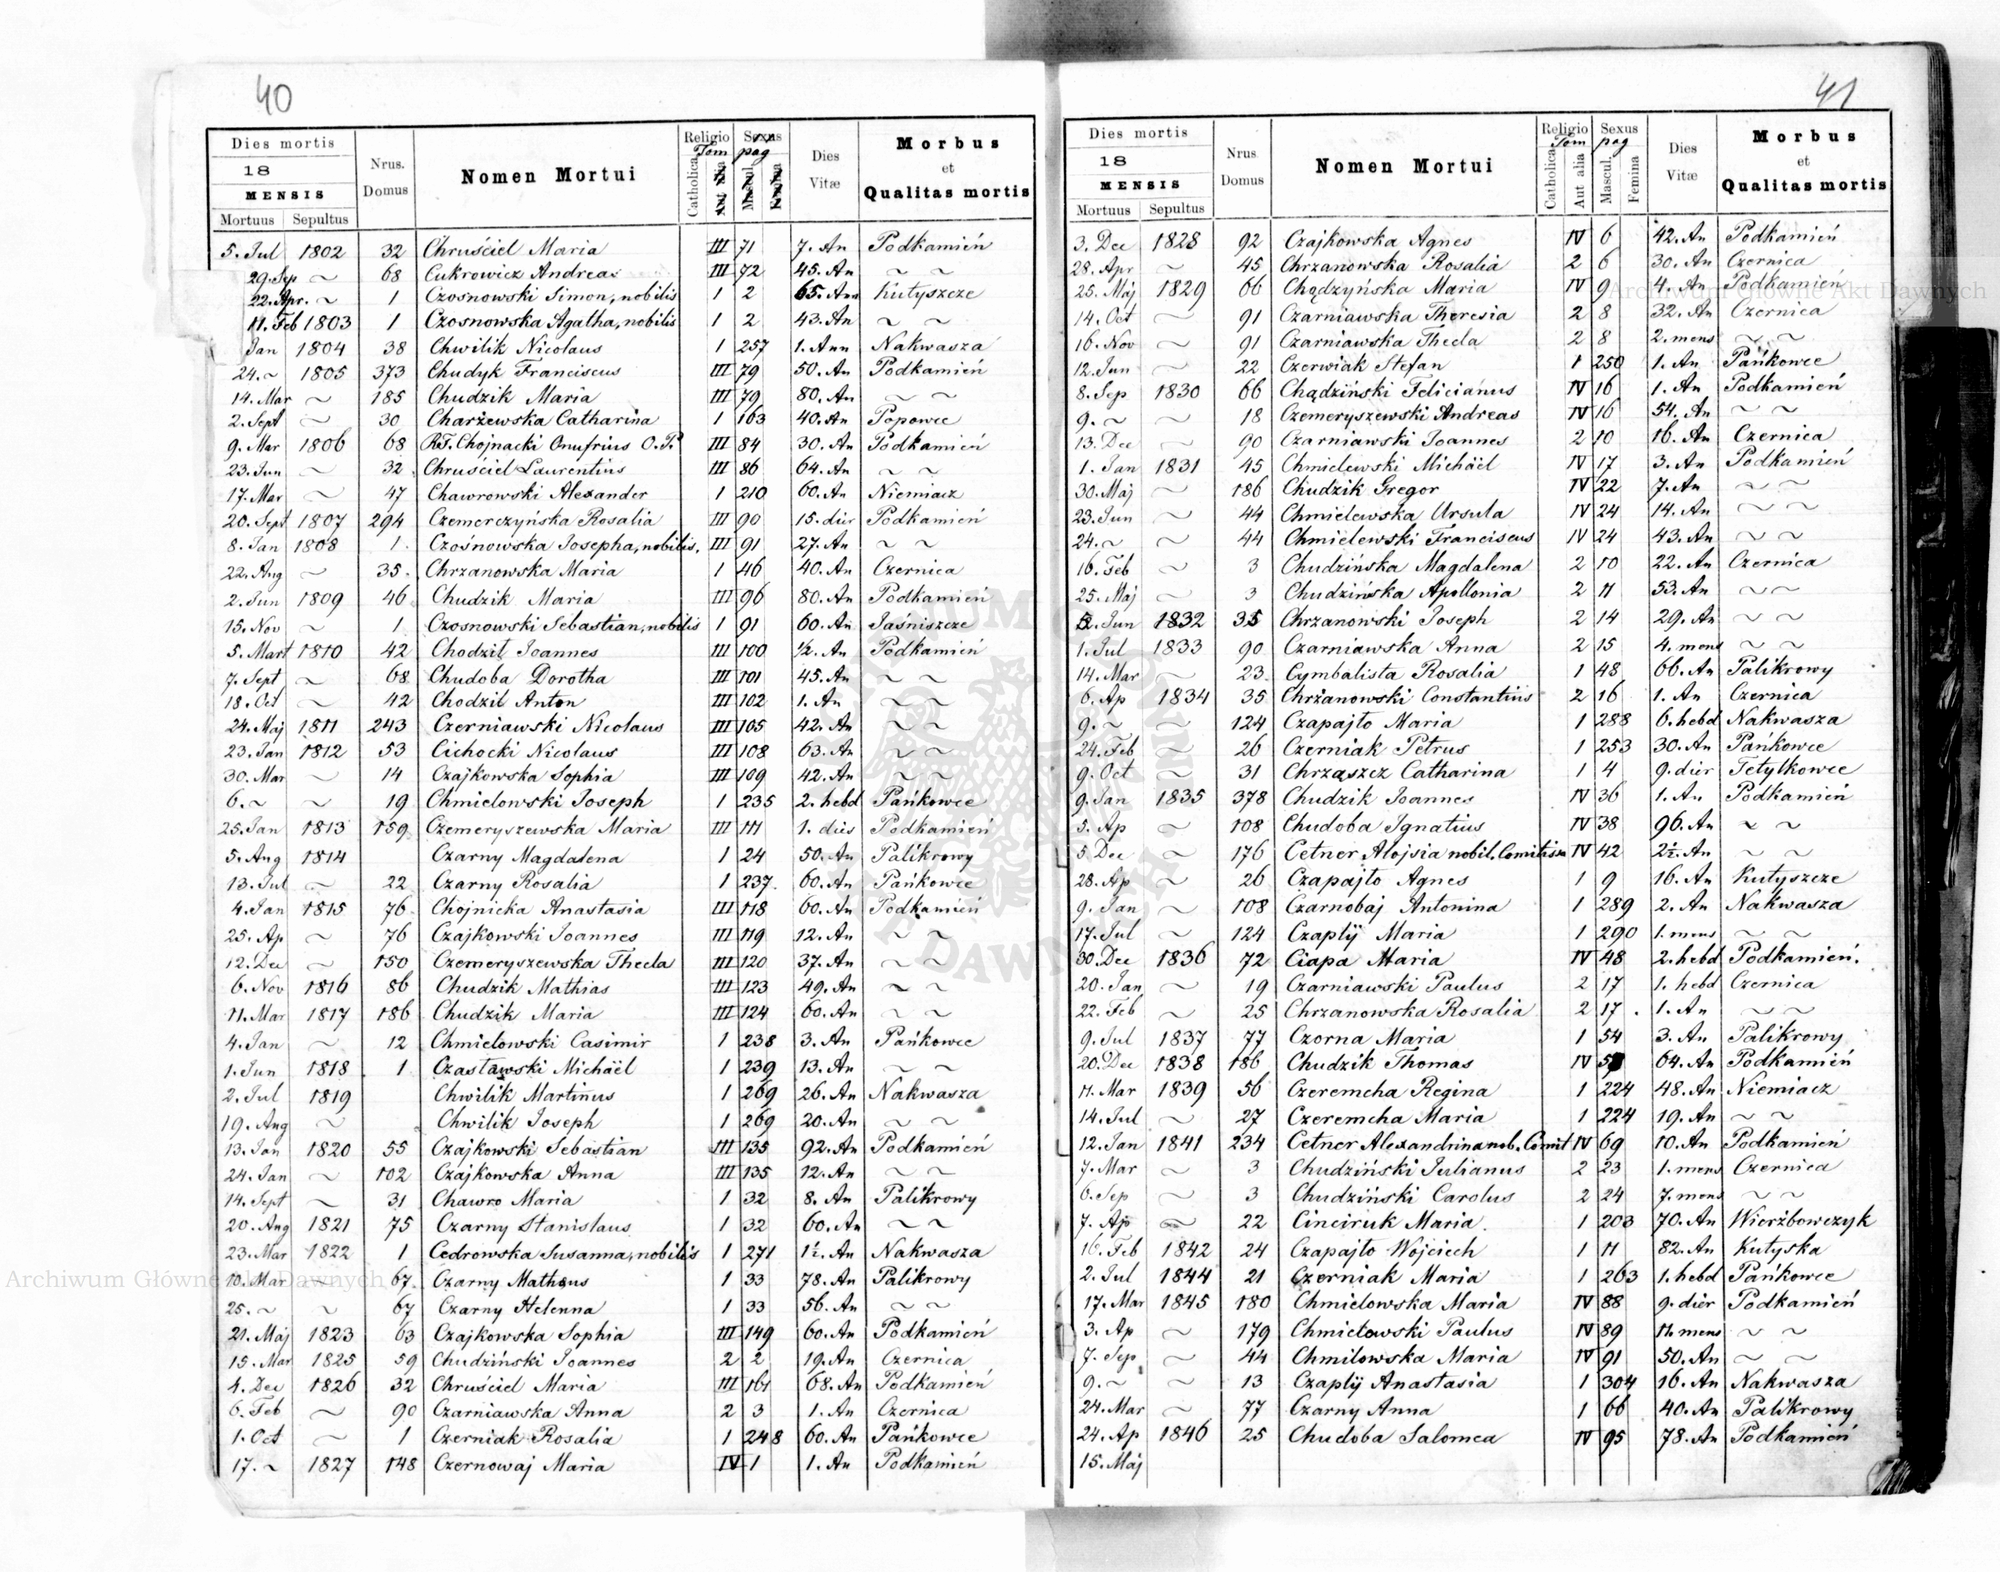 40
Dies mortis
18
MENSIS
Mortuus Sepultus
Nrus. Domus
Nomen Mortui
Religio Tom
Catholica Aut alia
Sexus pag
Mascul. Femina
Dies Vitæ
Morbus et Qualitas mortis
5. Jul 1802 32 Chruściel Maria III 71 7. An Podkamień
29. Sep ~ 68 Cukrowicz Andreas III 72 45. An ~ ~
22. Apr. ~ 1 Czosnowski Simon, nobilis 1 2 65. Ann Kutyszcze
11. Feb 1803 1 Czosnowska Agatha, nobilis 1 2 43. An ~ ~
Jan 1804 38 Chwilik Nicolaus 1 257 1. Ann Nakwasza
24. ~ 1805 373 Chudyk Franciscus III 79 50. An Podkamień
14. Mar ~ 185 Chudzik Maria III 79 80. An ~ ~
2. Sept ~ 30 Charżewska Catharina 1 163 40. An Popowce
9. Mar 1806 68 Chojnacki Onufrius O. P. III 84 30. An Podkamień
23. Jun ~ 32 Chruściel Laurentius III 86 64. An ~ ~
17. Mar ~ 47 Chawrowski Alexander 1 210 60. An Niemiacz
20. Sept 1807 294 Czemerczyńska Rosalia III 90 15. dier Podkamień
8. Jan 1808 1. Czośnowska Josepha, nobilis. III 91 27. An ~ ~
22. Aug ~ 35. Chrzanowska Maria 1 46 40. An Czernica
2. Jun 1809 46 Chudzik Maria III 96 80. An Podkamień
15. Nov ~ 1. Czosnowski Sebastian, nobilis 1 91 60. An Jaśniszcze
5. Mart 1810 42 Chodzil Joannes III 100 ½. An Podkamień
7. Sept ~ 68 Chudoba Dorotha III 101 45. An ~ ~
18. Oct ~ 42 Chodzil Anton III 102 1. An ~ ~
24. Maj 1811 243 Czerniawski Nicolaus III 105 42. An ~ ~
23. Jan 1812 53 Cichocki Nicolaus III 108 63. An ~ ~
30. Mar ~ 14 Czajkowska Sophia III 109 42. An ~ ~
6. ~ ~ 19 Chmielowski Joseph 1 235 2. hebd Pańkowce
25. Jan 1813 159 Czemeryszewska Maria III 111 1. dies Podkamień
5. Aug 1814 Czarny Magdalena 1 24 50. An Palikrowy
13. Jul ~ 22 Czarny Rosalia 1 237. 60. An Pańkowce
4. Jan 1815 76 Chojnicka Anastasia III 118 60. An Podkamień
25. Ap ~ 76 Czajkowski Joannes III 119 12. An ~ ~
12. Dec ~ 150 Czemeryszewska Thecla III 120 37. An ~ ~
6. Nov 1816 86 Chudzik Mathias III 123 49. An ~ ~
11. Mar 1817 186 Chudzik Maria III 124 60. An ~ ~
4. Jan ~ 12 Chmielowski Casimir 1 238 3. An Pańkowce
1. Jun 1818 1 Czastawski Michaël 1 239 13. An ~ ~
2. Jul 1819 Chwilik Martinus 1 269 26. An Nakwasza
19. Aug ~ Chwilik Joseph 1 269 20. An ~ ~
13. Jan 1820 55 Czajkowski Sebastian III 135 92. An Podkamień
24. Jan ~ 102 Czajkowska Anna III 135 12. An ~ ~
14. Sept ~ 31 Chawro Maria 1 32 8. An Palikrowy
20. Aug 1821 75 Czarny Stanislaus 1 32 60. An ~ ~
23. Mar 1822 1 Cedrowska Susanna, nobilis 1 271 1½. An Nakwasza
10. Mar ~ 67. Czarny Matheus 1 33 78. An Palikrowy
25. ~ ~ 67 Czarny Helenna 1 33 56. An ~ ~
21. Maj 1823 63 Czajkowska Sophia III 149 60. An Podkamień
15. Mar 1825 59 Chudziński Joannes 2 2 19. An Czernica
4. Dec 1826 32 Chruściel Maria III 161 68. An Podkamień
6. Feb ~ 90 Czarniawska Anna 2 3 1. An Czernica
1. Oct ~ 1 Czerniak Rosalia 1 248 60. An Pańkowce
17. ~ 1827 148 Czernowaj Maria IV 1 1. An Podkamień
41
Dies mortis
18
MENSIS
Mortuus Sepultus
Nrus Domus
Nomen Mortui
Religio Tom
Catholica Aut alia
Sexus pag
Mascul. Femina
Dies Vitæ
Morbus et Qualitas mortis
3. Dec 1828 92 Czajkowska Agnes IV 6 42. An Podkamień
28. Apr ~ 45 Chrzanowska Rosalia 2 6 30. An Czernica
25. Maj 1829 66 Chądzyńska Maria IV 9 4. An Podkamień
14. Oct ~ 91 Czarniawska Theresia 2 8 32. An Czernica
16. Nov ~ 91 Czarniawska Thecla 2 8 2. mens ~ ~
12. Jun ~ 22 Czerwiak Stefan 1 250 1. An Pańkowce
8. Sep 1830 66 Chądziński Felicianus IV 16 1. An Podkamień
9. ~ ~ 18 Czemeryszewski Andreas IV 16 54. An ~ ~
13. Dec ~ 90 Czarniawski Joannes 2 10 16. An Czernica
1. Jan 1831 45 Chmielewski Michaël IV 17 3. An Podkamień
30. Maj ~ 186 Chudzik Gregor IV 22 7. An ~ ~
23. Jun ~ 44 Chmielewska Ursula IV 24 14. An ~ ~
24. ~ ~ 44 Chmielewski Franciscus IV 24 43. An ~ ~
16. Feb ~ 3 Chudzińska Magdalena 2 10 22. An Czernica
25. Maj ~ 3 Chudzińska Apollonia 2 11 53. An ~ ~
Jun 1832 35 Chrzanowski Joseph 2 14 29. An ~ ~
1. Jul 1833 90 Czarniawska Anna 2 15 4. mens ~ ~
14. Mar ~ 23. Cymbalista Rosalia 1 48 66. An Palikrowy
6. Ap 1834 35 Chrzanowski Constantius 2 16 1. An Czernica
9. ~ ~ 124 Czapajło Maria 1 288 6. hebd Nakwasza
24. Feb ~ 26 Czerniak Petrus 1 253 30. An Pańkowce
9. Oct ~ 31 Chrząszcz Catharina 1 4 9. dier Tetylkowce
9. Jan 1835 378 Chudzik Joannes IV 36 1. An Podkamień
5. Ap ~ 108 Chudoba Ignatius IV 38 96. An ~ ~
5. Dec ~ 176 Cetner Alojsia nobil. Comitissa IV 42 2½. An ~ ~
28. Ap ~ 26 Czapajło Agnes 1 9 16. An Kutyszcze
9. Jan ~ 108 Czarnobaj Antonina 1 289 2. An Nakwasza
17. Jul ~ 124 Czaplÿ Maria 1 290 1. mens ~ ~
30. Dec 1836 72 Ciapa Maria IV 48 2. hebd Podkamień.
20. Jan ~ 19 Czarniawski Paulus 2 17 1. hebd Czernica
22. Feb ~ 25 Chrzanowska Rosalia 2 17. 1. An ~ ~
9. Jul 1837 77 Czorna Maria 1 54 3. An Palikrowy
20. Dec 1838 186 Chudzik Thomas IV 64. An Podkamień
11. Mar 1839 56 Czeremcha Regina 1 224 48. An Niemiacz
14. Jul ~ 27 Czeremcha Maria 1 224 19. An ~ ~
12. Jan 1841 234 Cetner Alexandrina nob. Comit IV 69 10. An Podkamień
7. Mar ~ 3 Chudziński Julianus 2 23 1. mens Czernica
6. Sep ~ 3 Chudziński Carolus 2 24 7. mens ~ ~
7. Ap ~ 22 Cinciruk Maria. 1 203 70. An Wierżbowczyk
16. Feb 1842 24 Czapajło Wojciech 1 11 82. An Kutyska
2. Jul 1844 21 Czerniak Maria 1 263 1. hebd Pańkowce
17. Mar 1845 180 Chmielowska Maria IV 88 9. dier Podkamień
3. Ap ~ 179 Chmielowski Paulus IV 89 11. mens ~ ~
7. Sep ~ 44 Chmilowska Maria IV 91 50. An ~ ~
9. ~ ~ 13 Czaplÿ Anastasia 1 304 16. An Nakwasza
24. Mar ~ 77 Czarny Anna 1 66 40. An Palikrowy
24. Ap 1846 25 Chudoba Salomea IV 95 78. An Podkamień
15. Maj
Archiwum Główne Akt Dawnych
Archiwum Główne Akt Dawnych